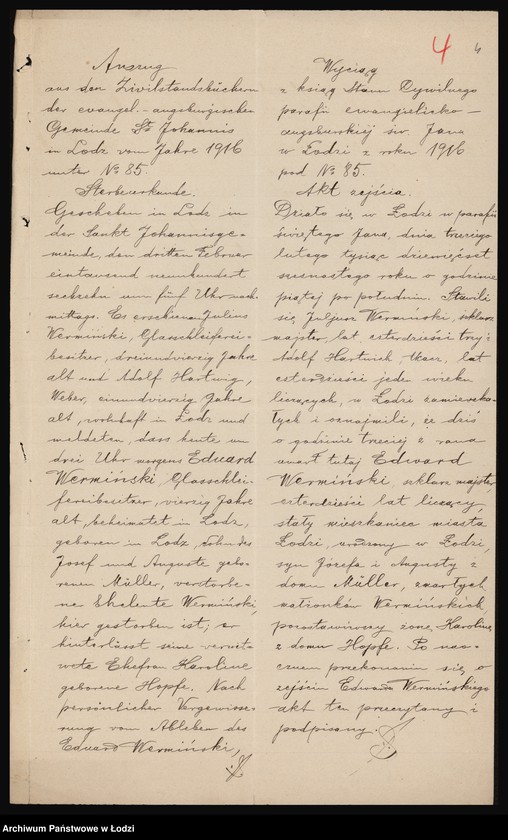 4
4
Auszug
aus den Zivilstandsbüchern
der evangel.-augsburgischen
Gemeinde St. Johannis
in Lodz vom Jahre 1916
unter № 85.
Sterbeurkunde.
Geschehen in Lodz in
der Sankt Johannisge-
meinde, den dritten Februar
eintausend neunhundert
sechzehn um fünf Uhr nach-
mittags. Es erschienen Julius
Wermiński, Glasschleiferei-
besitzer, dreiundvierzig Jahre
alt und Adolf Hartwig,
Weber, einundvierzig Jahre
alt, wohnhaft in Lodz und
meldeten, dass heute um
drei Uhr morgens Eduard
Wermiński, Glasschlei-
fereibesitzer, vierzig Jahre
alt, beheimatet in Lodz,
geboren in Lodz, Sohn des
Josef und Auguste gebo-
renen Müller, verstorbe-
ne Eheleute Wermiński,
hier gestorben ist; er
hinterlässt seine verwit-
wete Ehefrau Karoline
geborene Hopfe. Nach
persönlicher Vergewisse-
rung vom Ableben des
Eduard Wermiński,
Wyciąg
z ksiąg Stanu Cywilnego
parafii ewangielicko-
augsburskiej św. Jana
w Łodzi z roku 1916
pod № 85.
Akt zejścia.
Działo się w Łodzi w parafii
świętego Jana, dnia trzeciego
lutego tysiąc dziewięćset
szesnastego roku o godzinie
piątej po południu. Stawili
się Juljusz Wermiński, szklarz
majster, lat czterdzieści trzy i
Adolf Hartwick tkacz, lat
czterdzieści jeden wieku
liczących, w Łodzi zamieszka-
łych i oznajmili, że dziś
o godzinie trzeciej z rana
umarł tutaj Edward
Wermiński, szklarz majster,
czterdzieści lat liczący,
stały mieszkaniec miasta
Łodzi, urodzony w Łodzi,
syn Józefa i Augusty z
domu Müller, zmarłych
małżonków Wermińskich,
pozostawiwszy żonę Karolinę
z domu Hopfe. Po nao-
cznem przekonaniu się o
zejściu Edwarda Wermińskiego
akt ten przeczytany i
podpisany.
Archiwum Państwowe w Łodzi